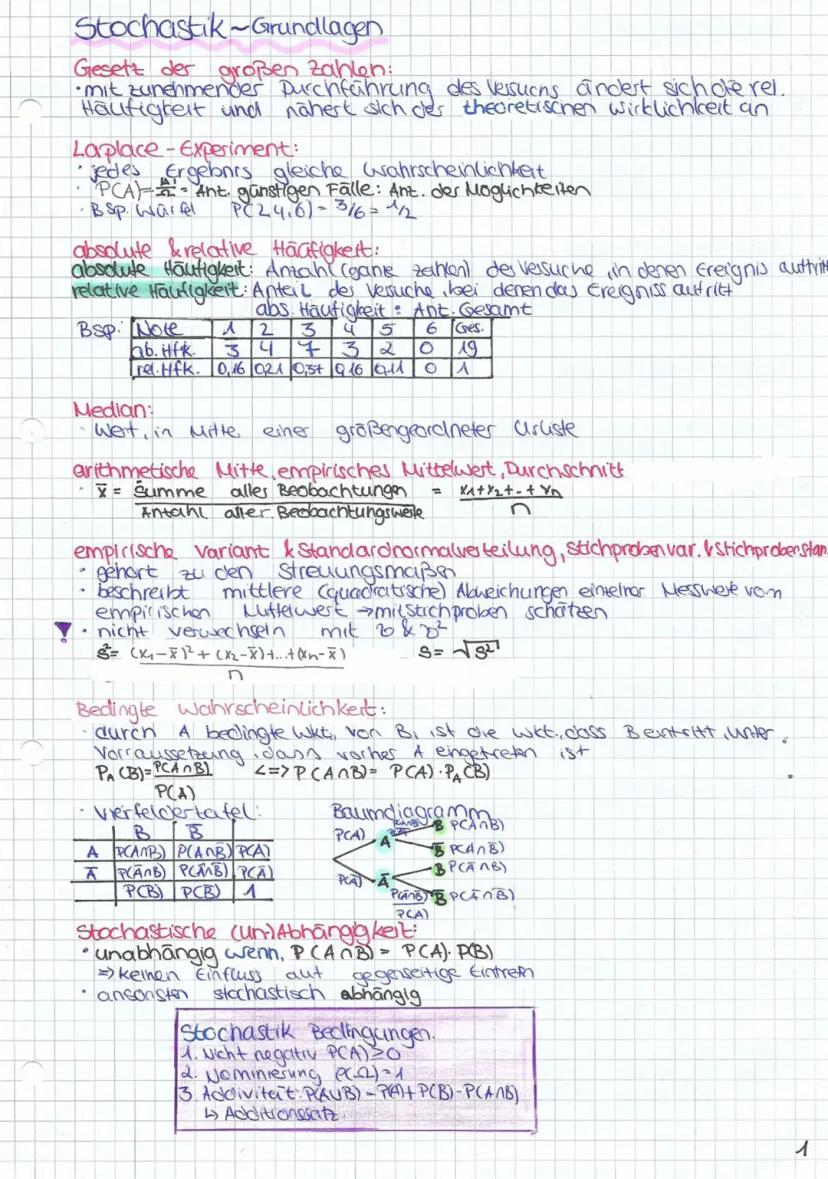 Stochastik ~ Grundlagen
Gesetz der großen Zahlen:
• mit zunehmender Durchführung des Versuchs ändert sich die rel.
Häufigkeit und nähert sich der theoretischen Wirklichkeit an
Laplace - Experiment:
• jedes Ergebnis gleiche Wahrscheinlichkeit
• P(A) = |A|/|Ω| = Ant. günstigen Fälle : Ant. der Möglichkeiten
• Bsp. Würfel P(2,4,6) = 3/6 = 1/2
absolute & relative Häufigkeit:
absolute Häufigkeit: Anzahl (ganze zahlen) der Versuche, in denen Ereignis auftritt
relative Häufigkeit: Anteil der Versuche, bei denen das Ereigniss auftritt
abs. Häufigkeit : Ant. Gesamt
Bsp. Note 1 2 3 4 5 6 Ges.
ab. Hfk. 3 4 7 3 2 0 19
rel. Hfk. 0,16 0,21 0,37 0,16 0,11 0 1
Median:
• Wert, in Mitte einer größengeordneter Urliste
arithmetische Mitte, empirisches Mittelwert, Durchschnitt
• x̄ = Summe aller Beobachtungen / Anzahl aller Beobachtungswerte = x1+x2+..+xn / n
empirische Variant & Standardnormalverteilung, Stichprobenvar. & Stichprobenstan
• gehört zu den Streuungsmaßen
• beschreibt mittlere (quadratische) Abweichungen einelner Messwerte vom
empirischen Mittelwert → mit Stichproben schätzen
! • nicht verwechseln mit σ & σ²
s² = (x1-x̄)² + (x2-x̄)+...+(xn-x̄) / n s = √s²
Bedingte Wahrscheinlichkeit:
• durch A bedingte Wkt, von B, ist die Wkt., dass B eintritt, unter
Vorraussetzung, dass vorher A eingetreten ist
P_A(B) = P(A∩B) / P(A) <=> P(A∩B) = P(A) · P_A(B)
• Vierfeldertafel:
B B̄
A P(A∩B) P(A∩B̄) P(A)
Ā P(Ā∩B) P(Ā∩B̄) P(Ā)
P(B) P(B̄) 1
Baumdiagramm
P(A) A B P(A∩B)
B̄ P(A∩B̄)
P(Ā) Ā B P(Ā∩B)
P(Ā∩B̄) / P(Ā) B̄ P(Ā∩B̄)
Stochastische (Un-)Abhängigkeit:
• unabhängig wenn, P(A∩B) = P(A) · P(B)
=> keinen Einfluss auf gegenseitige Eintreten
• ansonsten stochastisch abhängig
Stochastik Bedingungen.
1. Nicht negativ P(A) ≥ 0
2. Nominierung P(Ω) = 1
3. Addivität: P(A∪B) = P(A) + P(B) - P(A∩B)
↳ Additionssatz
1